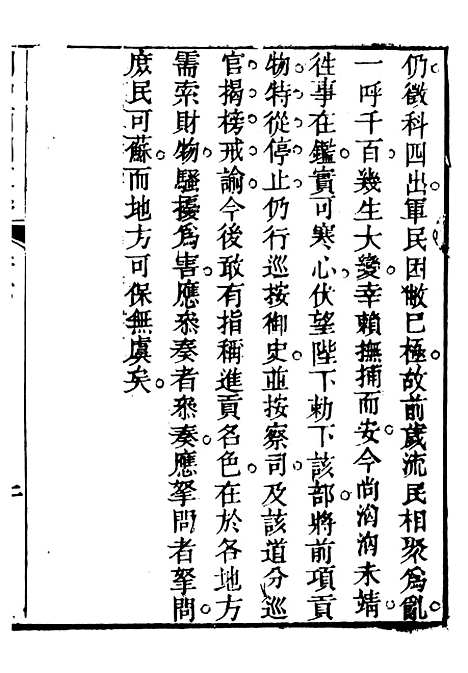 仍徵科四出。軍民困敝已極。故前歲流民相聚爲亂。
一呼千百。幾生大變。幸賴撫捕而安。今尚洶洶未靖。
往事在鑑。實可寒心。伏望陛下勅下該部。將前項貢
物。特從停止。仍行巡按御史。並按察司及該道分巡
官。揭榜戒諭。今後敢有指稱進貢名色。在於各地方
需索財物。騷擾爲害。應叅奏者叅奏。應拏問者拏問。
庶民可蘇。而地方可保無虞矣。
二